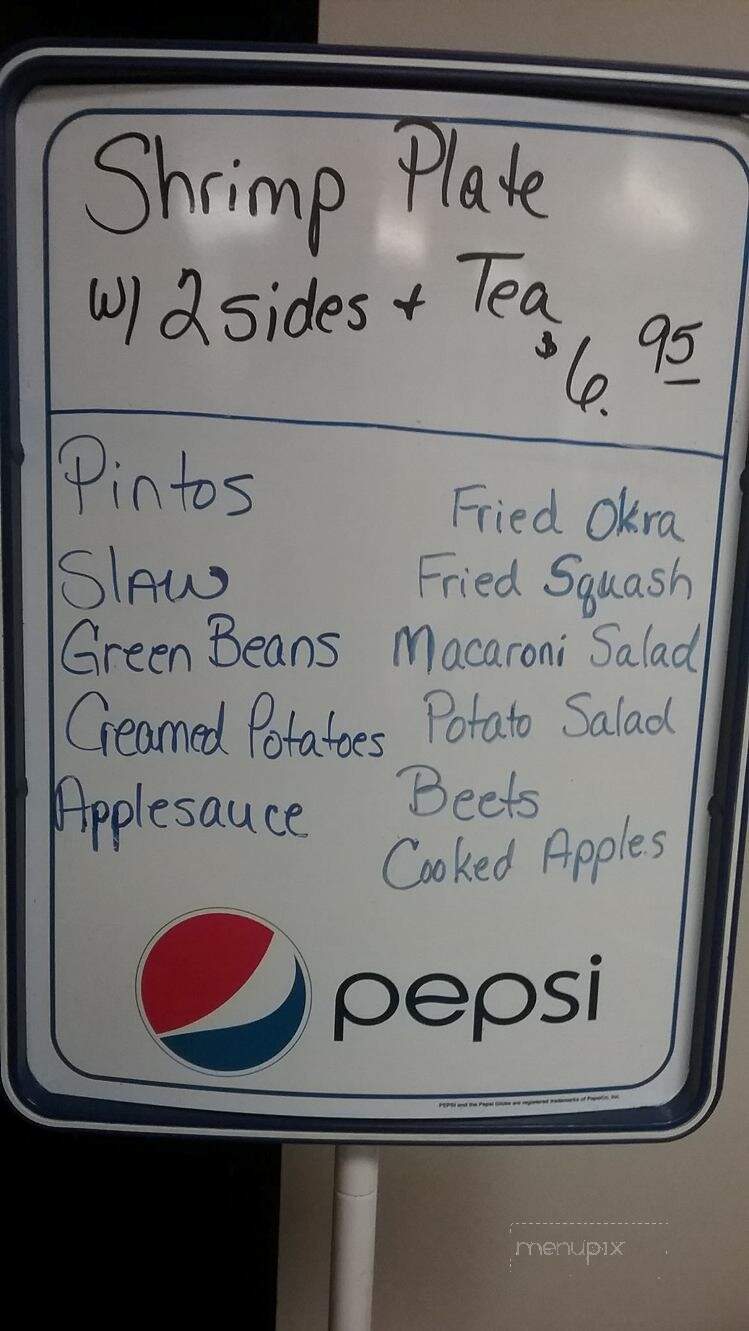 Shrimp Plate
w/ 2 sides + Tea
$6.95
Pintos
Slaw
Green Beans
Creamed Potatoes
Applesauce
Fried Okra
Fried Squash
Macaroni Salad
Potato Salad
Beets
Cooked Apples
pepsi
PEPSI and the Pepsi Globe are registered trademarks of PepsiCo, Inc.
menupix